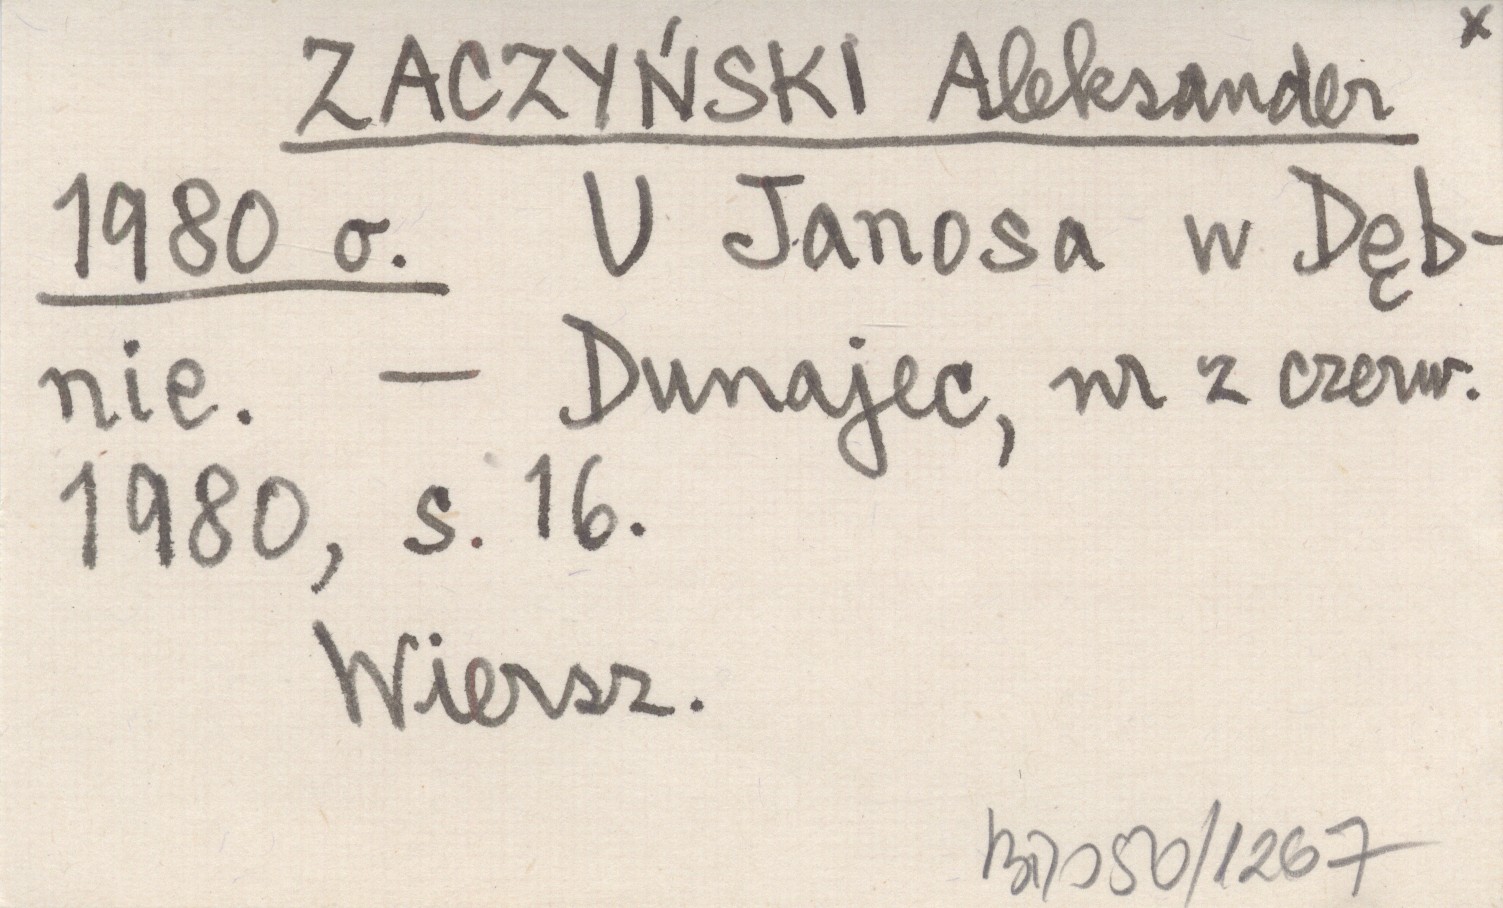 x
ZACZYŃSKI Aleksander
1980 o. U Janosa w Dęb-
nie. — Dunajec, nr z czerw.
1980, s. 16.
Wiersz.
/1267